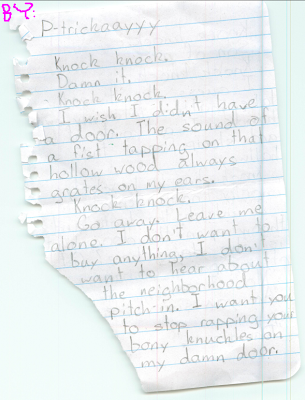 BY:
P-trickaayyy
Knock knock.
Damn it.
Knock knock.
I wish I didn't have
a door. The sound of
a fist tapping on that
hollow wood always
grates on my ears.
Knock knock.
Go away. Leave me
alone. I don't want to
buy anything, I don't
want to hear about
the neighborhood
pitch-in. I want you
to stop rapping your
bony knuckles on
my damn door.